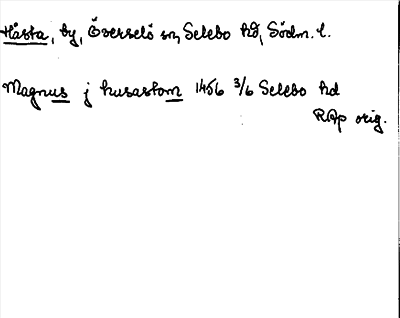 Håsta, by, Överselö sn, Selebo hd, Södm. l.
Magnus j husastom 1456 3/6 Selebo hd
RAp orig.